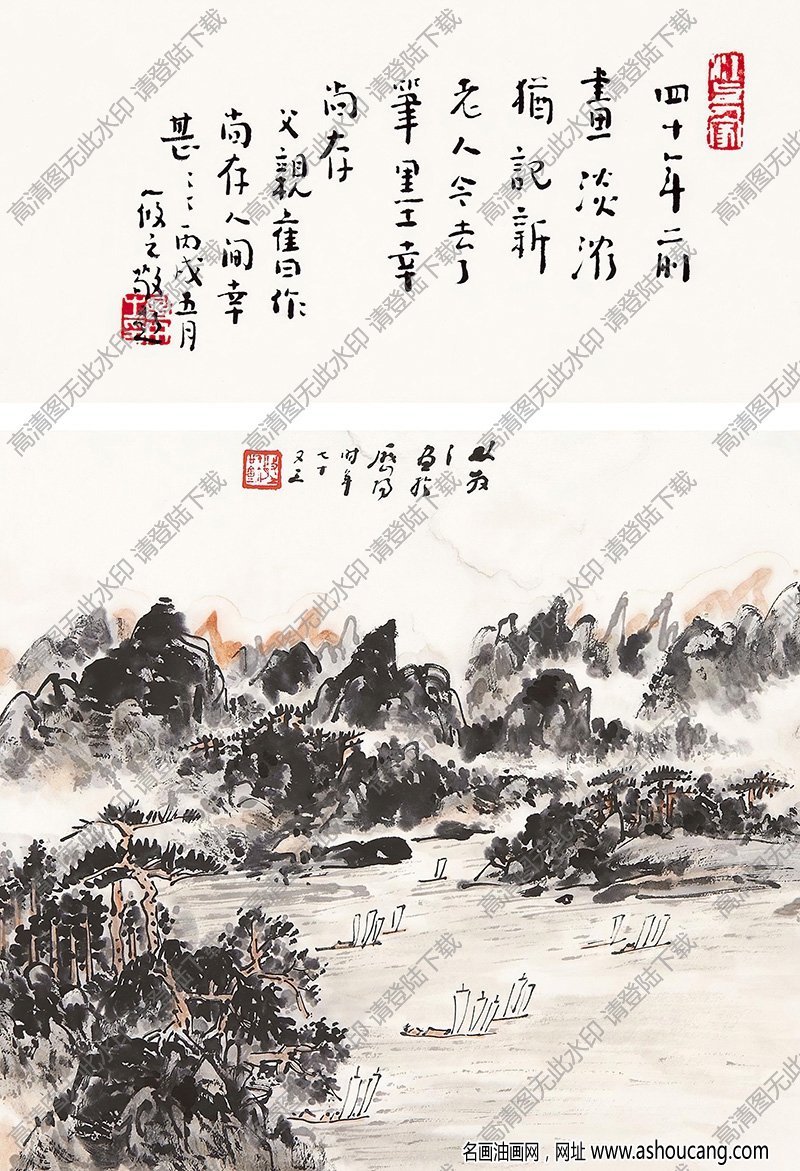 四十年前
畫淡濃
猶記新
老人今去了
筆墨幸
尚存
父親舊日作
尚存人間幸
甚〻丙戌五月
筱之敬題
林散
之
畫於
歷陽
時年
七十
高清图无此水印 请登陆下载
名画油画网，网址 www.ashoucang.com